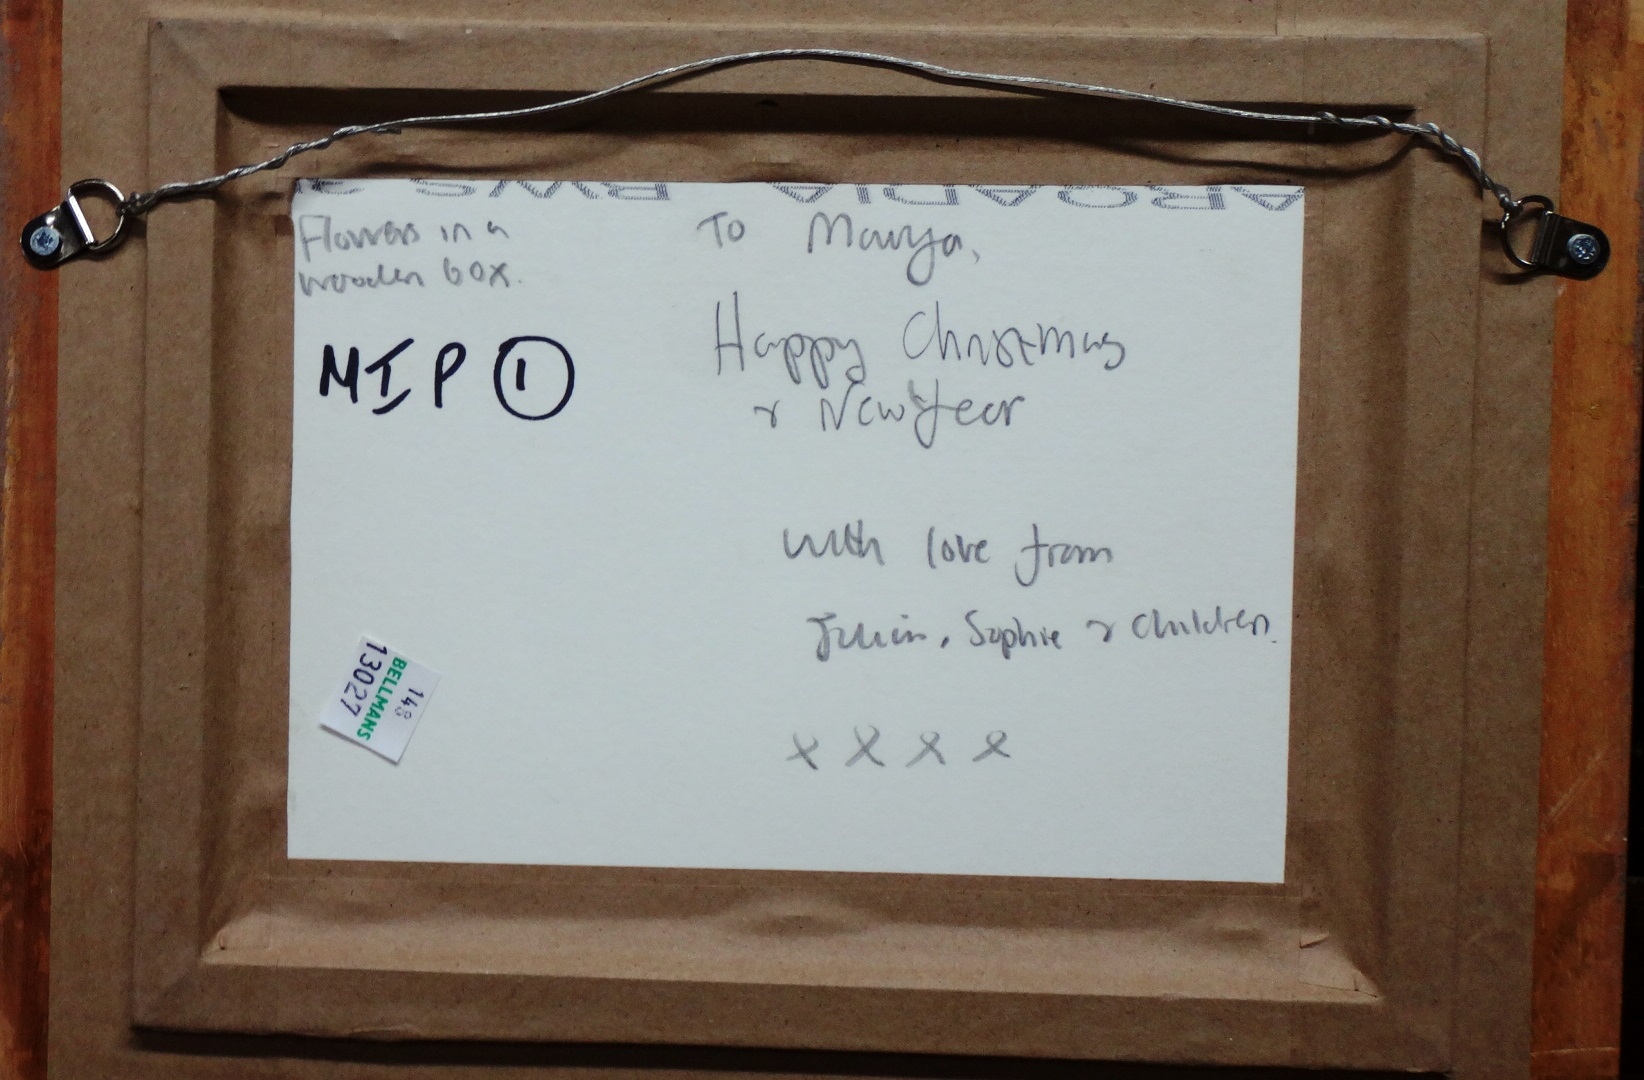 Flowers in a
wooden box.
MIP 1
To Maurya,
Happy Christmas
& New Year
with love from
Julian, Sophie & children.
x x x x
148
BELLMANS
13027